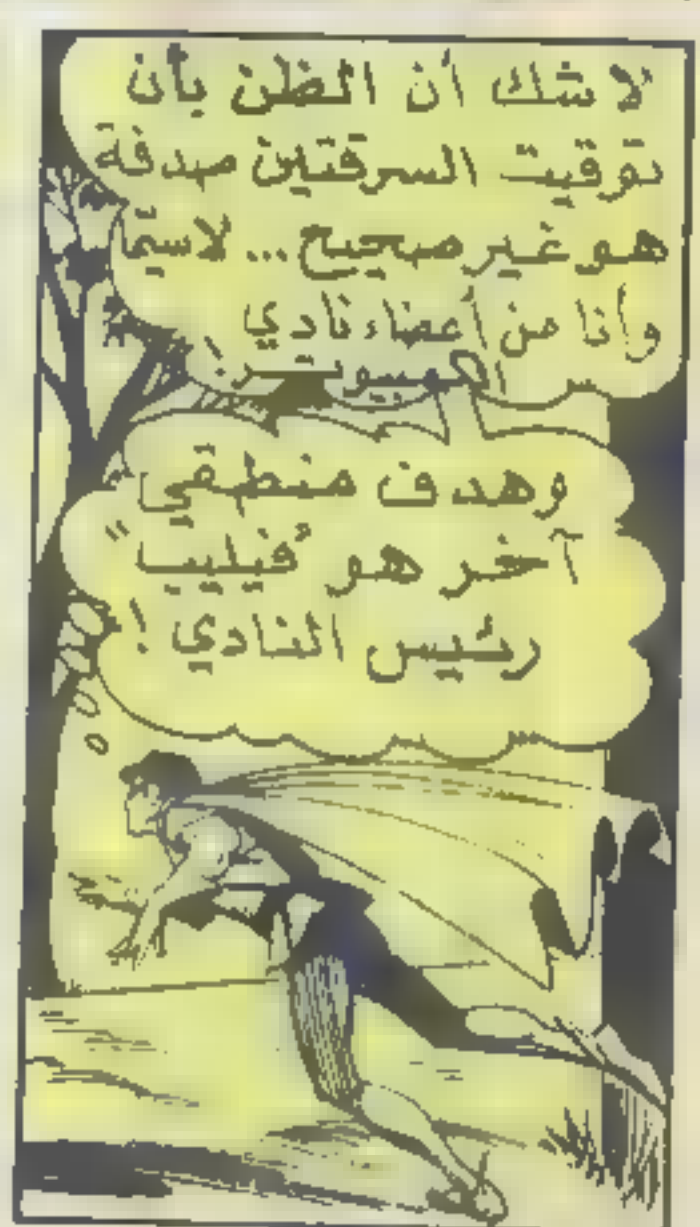 لا شك أن الظن بأن
توقيت السرقتين صدفة
هو غير صحيح... لا سيّما
وأنا من أعضاء نادي
الكمبيوتر!
وهدف منطقي
آخر هو "فيليب"
رئيس النادي!